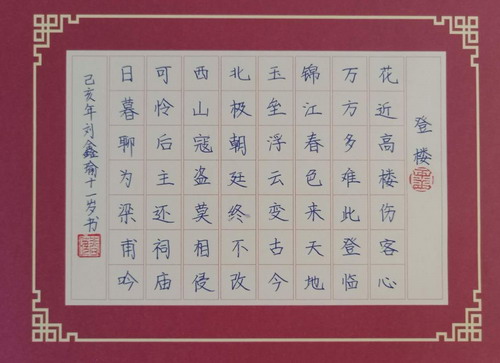 登楼
花近高楼伤客心
万方多难此登临
锦江春色来天地
玉垒浮云变古今
北极朝廷终不改
西山寇盗莫相侵
可怜后主还祠庙
日暮聊为梁甫吟
己亥年刘鑫瑜十一岁书